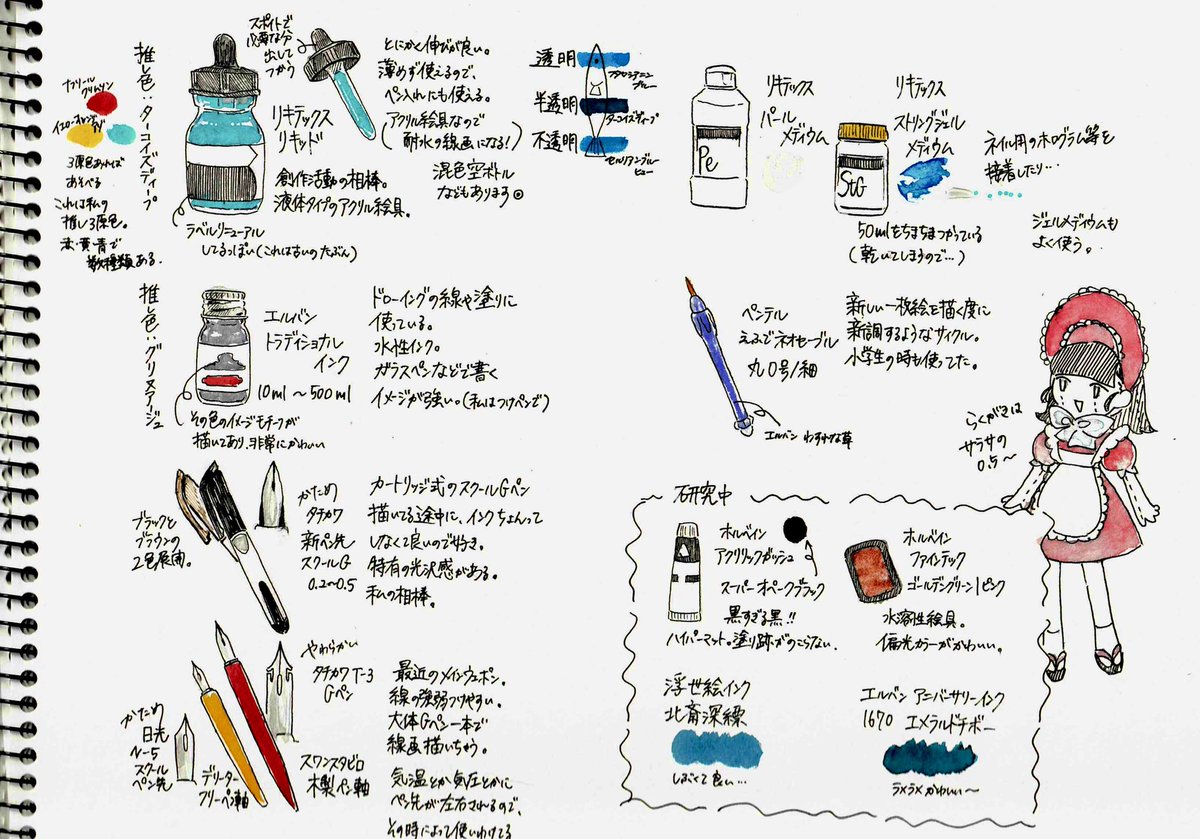 推し色:ターコイズディープ
スポイトで
必要な分
出して
つかう
とにかく伸びが良い。
薄めず使えるので、
ペン入れにも使える。
(アクリル絵具なので
耐水の線画になる!)
混色空ボトル
などもあります
リキテックス
リキッド
創作活動の相棒。
液体タイプのアクリル絵具。
ラベルリニューアル
してるっぽい(これは古いのたぶん)
ナフトール
クリムソン
3原色あれば
あそべる
これは私の
推し3原色。
赤・黄・青で
数種類ある。
透明
半透明
ターコイズディープ
不透明
セルリアンブルー
ヒュー
リキテックス
パール
メディウム
Pe
リキテックス
ストリングジェル
メディウム
StG
50mlをちまちまつかっている
(乾いてしまうので…)
ネイル用のホログラム等を
接着したり…
ジェルメディウムも
よく使う。
推し色:グリヌアージュ
エルバン
トラディショナル
インク
10ml～500ml
その色のイメージモチーフが
描いてあり、非常にかわいい
ドローイングの線や塗りに
使っている。
水性インク。
ガラスペンなどで書く
イメージが強い。(私はつけペンで)
ぺんてる
えふでネオセーブル
丸0号/細
エルバン わすれな草
新しい一枚絵を描く度に
新調するようなサイクル。
小学生の時も使ってた。
らくがきは
サラサの
0.5～
ブラックと
ブラウンの
2色展開。
かため
タチカワ
新ペン先
スクールG
0.2～0.5
カートリッジ式のスクールGペン
描いてる途中に、インクちょんって
しなくて良いので好き。
特有の光沢感がある。
私の相棒。
やわらかい
タチカワT-3
Gペン
かため
日光
N-5
スクール
ペン先
デリーター
フリーペン軸
スワンスタビロ
木製ペン軸
最近のメインウェポン。
線の強弱つけやすい。
大体Gペン一本で
線画描いちゃう。
気温とか気圧とかに
ペン先が左右されるので、
その時によって使いわけてる
研究中
ホルベイン
アクリリックガッシュ
スーパーオペークブラック
黒すぎる黒!!
ハイパーマット。塗り跡がのこらない。
ホルベイン
ファインテック
ゴールデングリーン/ピンク
水溶性絵具。
偏光カラーがかわいい。
浮世絵インク
北斎深縹
しぶくて良い…
エルバン アニバーサリーインク
1670 エメラルドチボー
ラメラメかわいい～